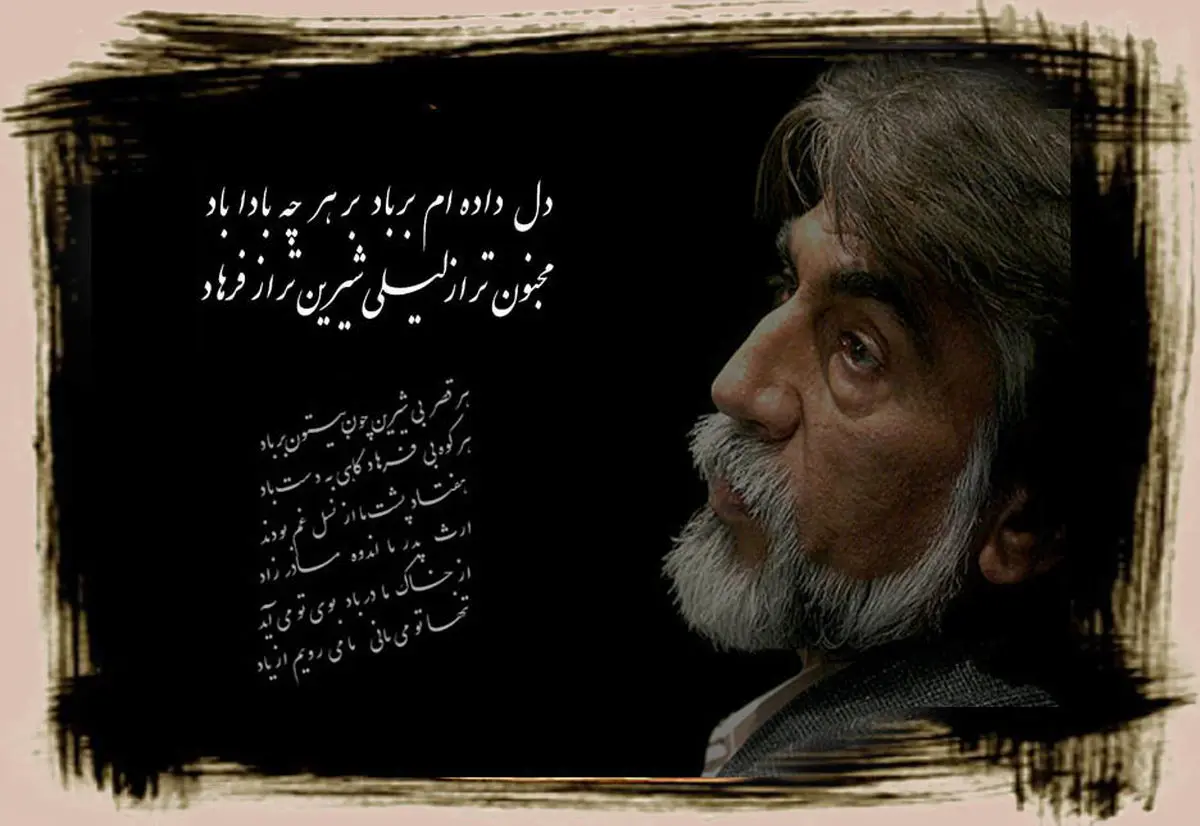 دل داده ام بر باد بر هر چه بادا باد
مجنون تر از لیلی شیرین تر از فرهاد
هر قصر بی شیرین چون بیستون بر باد
هر کوه بی فرهاد کاهی به دست باد
هفتاد پشت ما از نسل غم بودند
ارث پدر ما اندوه مادر زاد
از خاک ما در باد بوی تو می آید
تنها تو می مانی ما می رویم از یاد